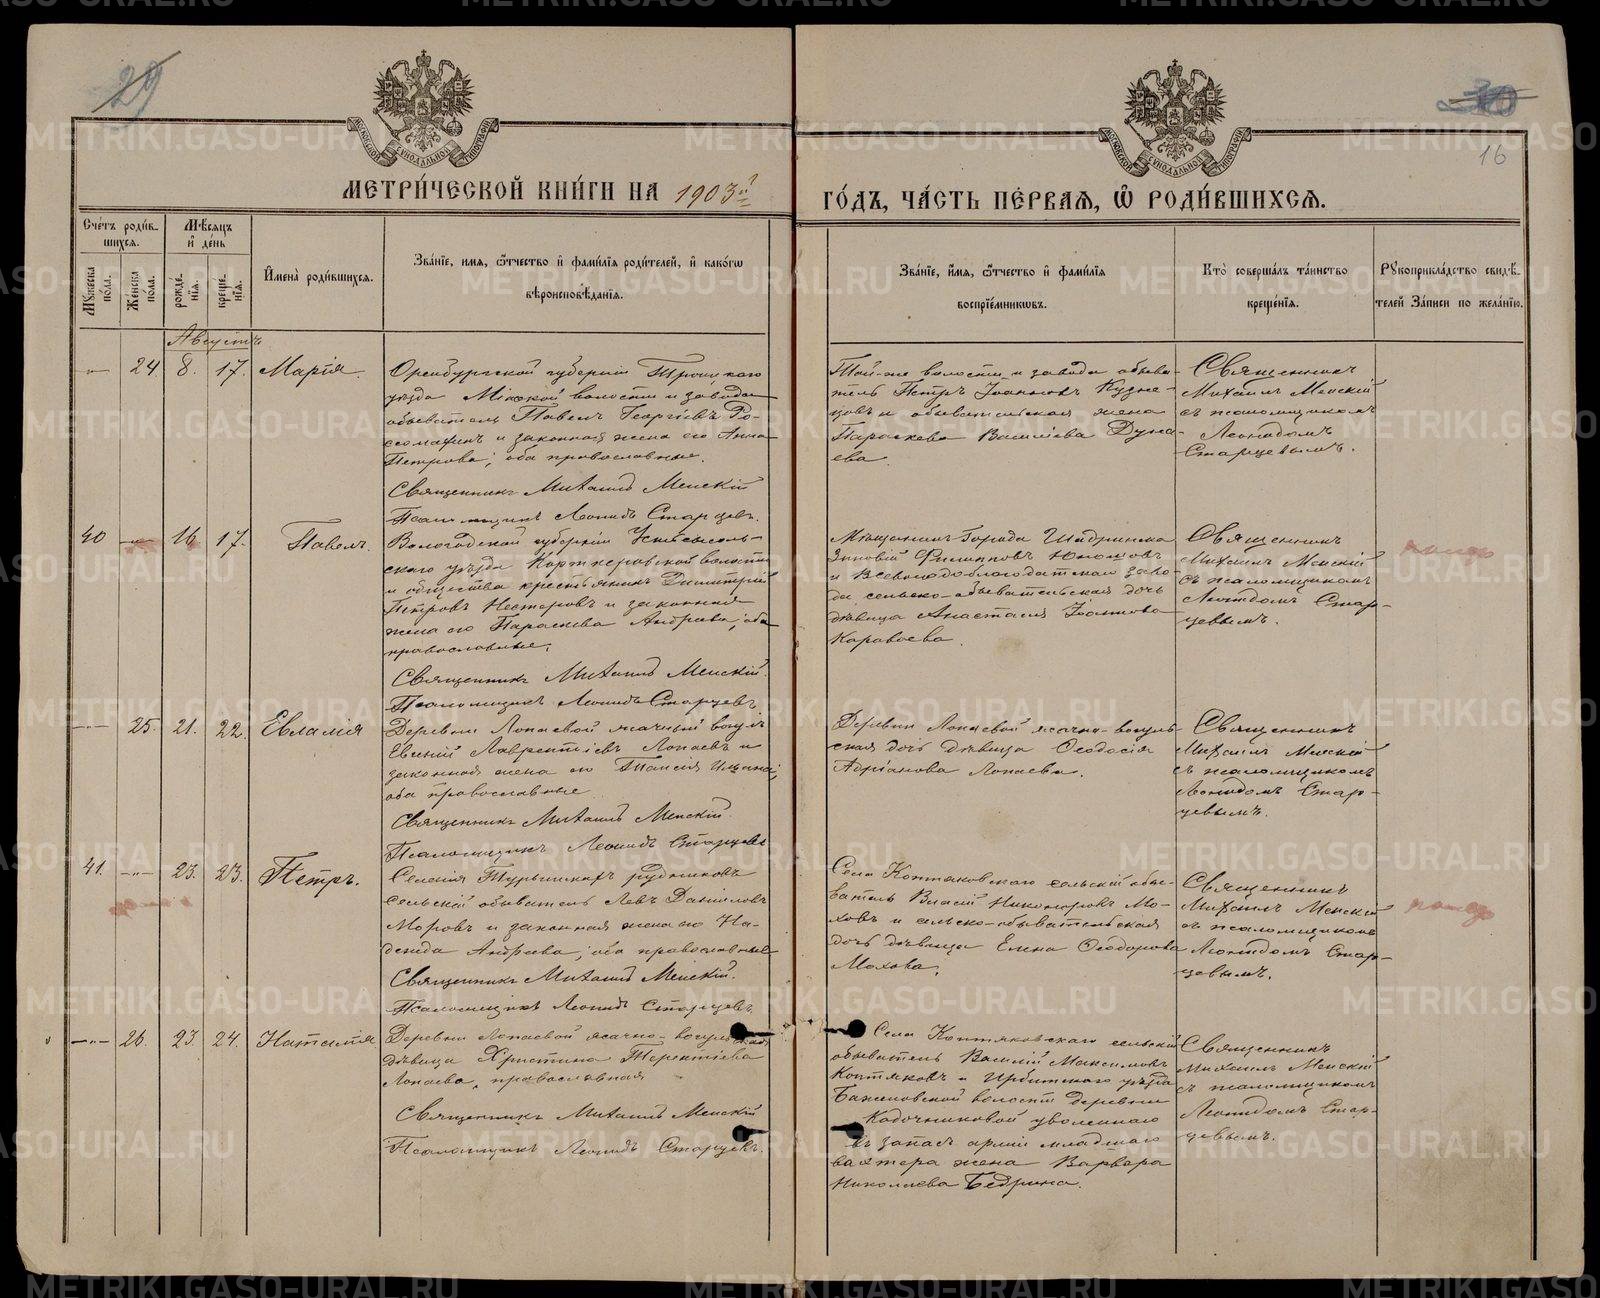 29
30
16
МОСКОВСКОЙ СѴНОДАЛЬНОЙ ТИПОГРАФІИ
МОСКОВСКОЙ СѴНОДАЛЬНОЙ ТИПОГРАФІИ
МЕТРИ́ЧЕСКОЙ КНИ́ГИ НА 1903й
ГО́ДЪ, ЧА́СТЬ ПЕ́РВАѦ, Ѡ҆ РОДИ́ВШИХСѦ.
Сче́тъ роди́в-
шихсѧ.
Мꙋ́жеска по́ла.
Же́нска по́ла.
Мѣ́сѧцъ
и҆ де́нь
рожде́-нїѧ.
креще́-нїѧ.
И҆мена̀ роди́вшихсѧ.
Зва́нїе, имѧ, ѻ҆́тчество и҆ фами́лїѧ роди́телей, и҆ како́гѡ
вѣроисповѣ́данїѧ.
Зва́нїе, и҆́мѧ, ѻ҆́тчество и҆ фами́лїѧ
воспрїе́мниковъ.
Кто̀ соверша́лъ та́инство
креще́нїѧ.
Рꙋкоприкла́дство свидѣ́-
телей за́писи по жела́нїю.
Августъ
-"- 24 8. 17. Марія.
Оренбургской губерніи Троицкаго
уѣзда Міасской волости и завода
обыватель Павелъ Георгіевъ Ро-
сомахинъ и законная жена его Анна
Петрова, оба православные.
Священникъ Михаилъ Менскій
Псаломщикъ Леонидъ Старцевъ.
Той-же волости и завода обыва-
тель Петръ Іоанновъ Кузне-
цовъ и обывательская жена
Параскева Василіева Дуна-
ева.
Священникъ
Михаилъ Менскій
съ псаломщикомъ
Леонидомъ
Старцевымъ.
40 -"- 16 17. Павелъ.
Вологодской губерніи Устьсысоль-
скаго уѣзда Корткеровской волости
и общества крестьянинъ Димитрій
Петровъ Нестеровъ и законная
жена его Параскева Андреева, оба
православные.
Священникъ Михаилъ Менскій.
Псаломщикъ Леонидъ Старцевъ
Мѣщанинъ города Шадринска
Зиновій Филипповъ Юкошовъ
и Всеволодоблагодатскаго заво-
да сельско-обывательская дочь
дѣвица Анастасія Іоаннова
Караваева.
Священникъ
Михаилъ Менскій
съ псаломщикомъ
Леонидомъ Стар-
цевымъ.
помер
-"- 25. 21. 22. Евлалія
Деревни Лопаевой ясачный вогулъ
Евсений Лаврентіевъ Лопаевъ и
законная жена его Таисія
оба православные
Священникъ Михаилъ Менскій.
Псаломщикъ Леонидъ Старцевъ
Деревни Лопаевой ясачно-вогуль-
ская дочь дѣвица Ѳеодосія
Адріанова Лопаева.
Священникъ
Михаилъ Менскій
съ псаломщикомъ
Леонидомъ Стар-
цевымъ.
41. -"- 23. 23. Петръ.
Селенія Турьинскихъ рудниковъ
сельскій обыватель Левъ Даніиловъ
Моровъ и законная жена его На-
дежда Андреева, оба православные
Священникъ Михаилъ Менскій.
Псаломщикъ Леонидъ Старцевъ.
Села Коптяковскаго сельскій обы-
ватель Власій Никаноровъ Мо-
ховъ и сельско-обывательская
дочь дѣвица Елена Ѳеодорова
Мохова.
Священникъ
Михаилъ Менскій
съ псаломщикомъ
Леонидомъ Стар-
цевымъ.
помер
-"- 26. 23. 24. Наталія
Деревни Лопаевой ясачно-вогульская
дѣвица Христина Терентіева
Лопаева, православная
Священникъ Михаилъ Менскій
Псаломщикъ Леонидъ Старцевъ.
Села Коптяковскаго сельскій
обыватель Василій Максимовъ
Коптяковъ и Ирбитскаго уѣзда
Баженовской волости деревни
Кадочниковой уволеннаго
въ запасъ арміи младшаго
вахтера жена Варвара
Николаева Бедрина.
Священникъ
Михаилъ Менскій
съ псаломщикомъ
Леонидомъ Стар-
цевымъ.
METRIKI.GASO-URAL.RU